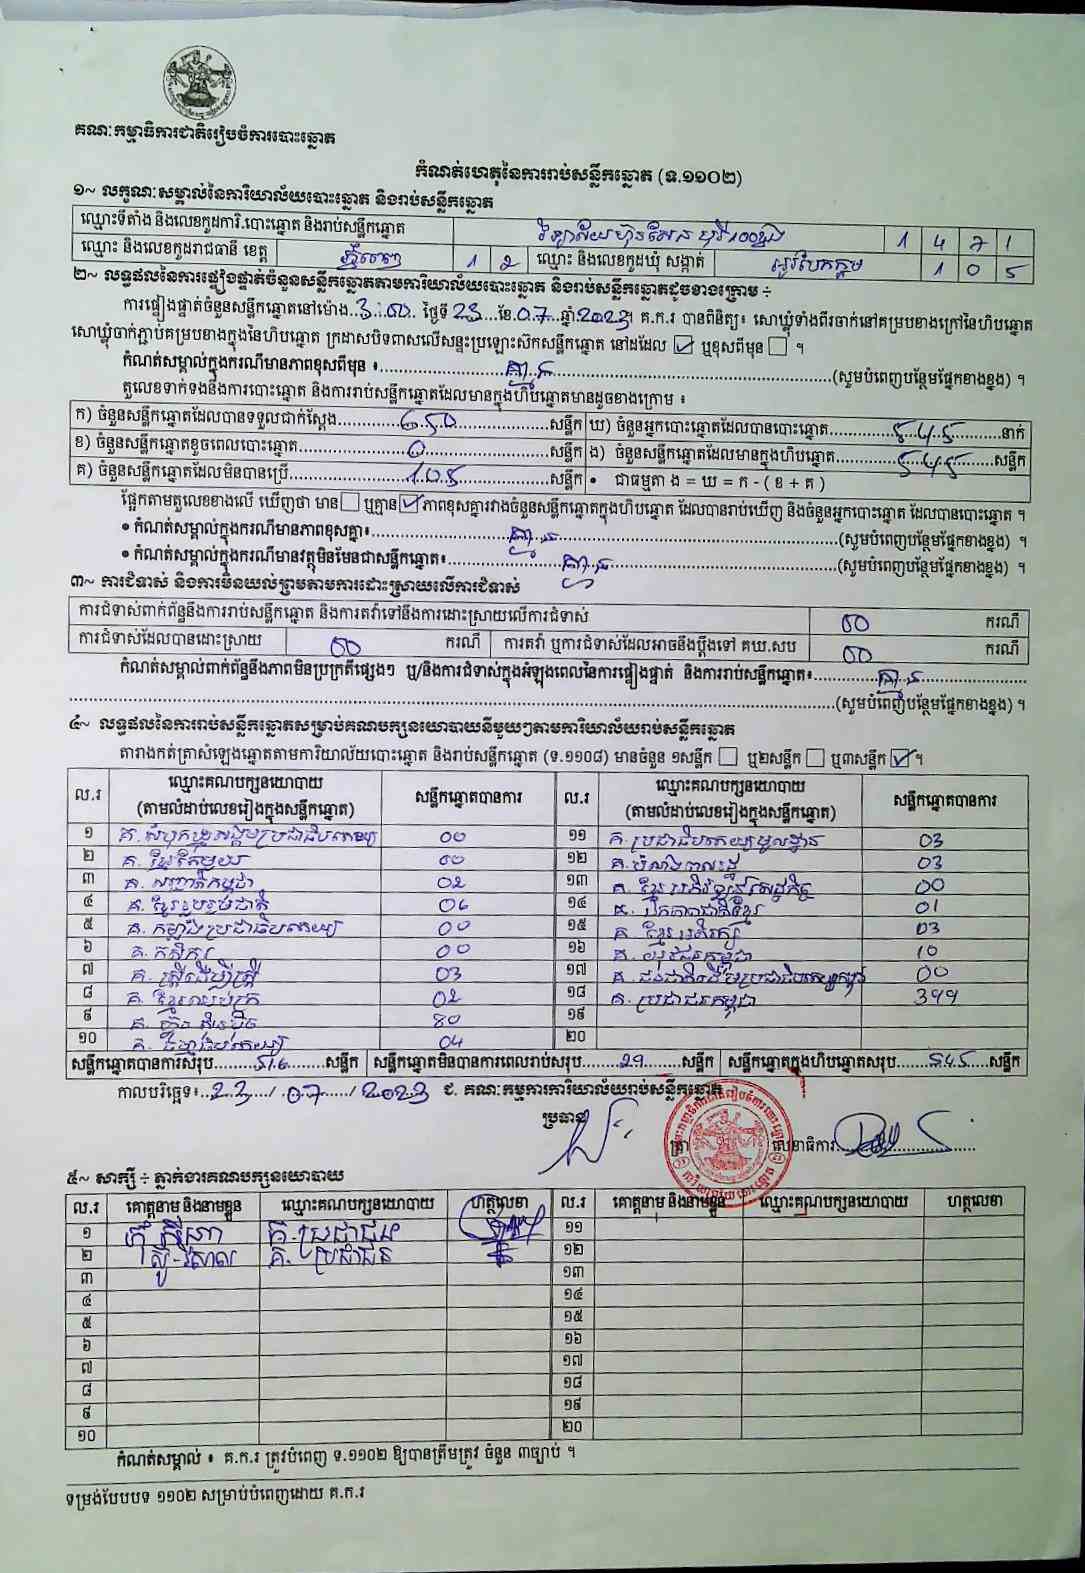 គណៈកម្មាធិការជាតិរៀបចំការបោះឆ្នោត
កំណត់ហេតុនៃការរាប់សន្លឹកឆ្នោត (ទ.១១០២)
១~ លក្ខណៈសម្គាល់នៃការិយាល័យបោះឆ្នោត និងរាប់សន្លឹកឆ្នោត
ឈ្មោះទីតាំង និងលេខកូដការិ.បោះឆ្នោត និងរាប់សន្លឹកឆ្នោត វិទ្យាល័យហ៊ុនសែន បុរី100ខ្នង 1 4 7 1
ឈ្មោះ និងលេខកូដរាជធានី ខេត្ត ភ្នំពេញ 1 2 ឈ្មោះ និងលេខកូដឃុំ សង្កាត់ អូរបែកក្អម 1 0 5
២~ លទ្ធផលនៃការផ្ទៀងផ្ទាត់ចំនួនសន្លឹកឆ្នោតតាមការិយាល័យបោះឆ្នោត និងរាប់សន្លឹកឆ្នោតដូចខាងក្រោម ÷
ការផ្ទៀងផ្ទាត់ចំនួនសន្លឹកឆ្នោតនៅម៉ោង..3:00. ថ្ងៃទី 23...ខែ.07..ឆ្នាំ.2023។ គ.ក.រ បានពិនិត្យ៖ សោឃ្លុំទាំងពីរចាក់នៅគម្របខាងក្រៅនៃហិបឆ្នោត
សោឃ្លុំចាក់ភ្ជាប់គម្របខាងក្នុងនៃហិបឆ្នោត ក្រដាសបិទពាសលើសន្ទះប្រឡោះស៊កសន្លឹកឆ្នោត នៅដដែល ☑ ឬខុសពីមុន ☐ ។
កំណត់សម្គាល់ក្នុងករណីមានភាពខុសពីមុន ៖ គ្មាន (សូមបំពេញបន្ថែមផ្នែកខាងខ្នង) ។
តួលេខទាក់ទងនឹងការបោះឆ្នោត និងការរាប់សន្លឹកឆ្នោតដែលមានក្នុងហិបឆ្នោតមានដូចខាងក្រោម ៖
ក) ចំនួនសន្លឹកឆ្នោតដែលបានទទួលជាក់ស្តែង 650 សន្លឹក ឃ) ចំនួនអ្នកបោះឆ្នោតដែលបានបោះឆ្នោត 545 នាក់
ខ) ចំនួនសន្លឹកឆ្នោតខូចពេលបោះឆ្នោត 0 សន្លឹក ង) ចំនួនសន្លឹកឆ្នោតដែលមានក្នុងហិបឆ្នោត 545 សន្លឹក
គ) ចំនួនសន្លឹកឆ្នោតដែលមិនបានប្រើ 105 សន្លឹក • ជាធម្មតា ង = ឃ = ក - ( ខ + គ )
ផ្អែកតាមតួលេខខាងលើ ឃើញថា មាន ☐ ឬគ្មាន ☑ ភាពខុសគ្នារវាងចំនួនសន្លឹកឆ្នោតក្នុងហិបឆ្នោត ដែលបានរាប់ឃើញ និងចំនួនអ្នកបោះឆ្នោត ដែលបានបោះឆ្នោត ។
• កំណត់សម្គាល់ក្នុងករណីមានភាពខុសគ្នា៖ គ្មាន (សូមបំពេញបន្ថែមផ្នែកខាងខ្នង) ។
• កំណត់សម្គាល់ក្នុងករណីមានវត្ថុមិនមែនជាសន្លឹកឆ្នោត៖ គ្មាន (សូមបំពេញបន្ថែមផ្នែកខាងខ្នង) ។
៣~ ការជំទាស់ និងការមិនយល់ព្រមតាមការដោះស្រាយលើការជំទាស់
ការជំទាស់ពាក់ព័ន្ធនឹងការរាប់សន្លឹកឆ្នោត និងការតវ៉ាទៅនឹងការដោះស្រាយលើការជំទាស់ 00 ករណី
ការជំទាស់ដែលបានដោះស្រាយ 00 ករណី ការតវ៉ា ឬការជំទាស់ដែលអាចនឹងប្តឹងទៅ គឃ.សប 00 ករណី
កំណត់សម្គាល់ពាក់ព័ន្ធនឹងភាពមិនប្រក្រតីផ្សេងៗ ឬ/និងការជំទាស់ក្នុងអំឡុងពេលនៃការផ្ទៀងផ្ទាត់ និងការរាប់សន្លឹកឆ្នោត៖ គ្មាន
(សូមបំពេញបន្ថែមផ្នែកខាងខ្នង) ។
៤~ លទ្ធផលនៃការរាប់សន្លឹកឆ្នោតសម្រាប់គណបក្សនយោបាយនីមួយៗតាមការិយាល័យរាប់សន្លឹកឆ្នោត
តារាងកត់ត្រាសំឡេងឆ្នោតតាមការិយាល័យបោះឆ្នោត និងរាប់សន្លឹកឆ្នោត (ទ.១១០៨) មានចំនួន ១សន្លឹក ☐ ឬ២សន្លឹក ☐ ឬ៣សន្លឹក ☑ ។
ល.រ ឈ្មោះគណបក្សនយោបាយ (តាមលំដាប់លេខរៀងក្នុងសន្លឹកឆ្នោត) សន្លឹកឆ្នោតបានការ ល.រ ឈ្មោះគណបក្សនយោបាយ (តាមលំដាប់លេខរៀងក្នុងសន្លឹកឆ្នោត) សន្លឹកឆ្នោតបានការ
១ គ. សំបុកឃ្មុំសង្គមប្រជាធិបតេយ្យ 00 ១១ គ. ប្រជាធិបតេយ្យមូលដ្ឋាន 03
២ គ. ខ្មែរតែមួយ 00 ១២ គ. បំណងពលរដ្ឋ 03
៣ គ. សញ្ជាតិកម្ពុជា 02 ១៣ គ. ខ្មែរអភិវឌ្ឍន៍សេដ្ឋកិច្ច 00
៤ គ. ខ្មែររួបរួមជាតិ 06 ១៤ គ. បក្សភាពជាតិខ្មែរ 01
៥ គ. កម្លាំងប្រជាធិបតេយ្យ 00 ១៥ គ. ខ្មែរអភិរក្ស 03
៦ គ. កសិករ 00 ១៦ គ. យុវជនកម្ពុជា 10
៧ គ. ស្ត្រីដើម្បីស្ត្រី 03 ១៧ គ. ជនជាតិដើមប្រជាធិបតេយ្យកម្ពុជា 00
៨ គ. ខ្មែរឈប់ក្រ 02 ១៨ គ. ប្រជាជនកម្ពុជា 399
៩ គ. ហ៊្វុនស៊ិនប៉ិច 80 ១៩
១០ គ. ធម្មាធិបតេយ្យ 04 ២០
សន្លឹកឆ្នោតបានការសរុប 516 សន្លឹក សន្លឹកឆ្នោតមិនបានការពេលរាប់សរុប 29 សន្លឹក សន្លឹកឆ្នោតក្នុងហិបឆ្នោតសរុប 545 សន្លឹក
កាលបរិច្ឆេទ៖ 23 / 07 / 2023 ជ. គណៈកម្មការការិយាល័យរាប់សន្លឹកឆ្នោត
ប្រធាន ត្រា លេខាធិការ
៥~ សាក្សី ÷ ភ្នាក់ងារគណបក្សនយោបាយ
ល.រ គោត្តនាម និងនាមខ្លួន ឈ្មោះគណបក្សនយោបាយ ហត្ថលេខា ល.រ គោត្តនាម និងនាមខ្លួន ឈ្មោះគណបក្សនយោបាយ ហត្ថលេខា
១ គ. ប្រជាជន ១១
២ គ. ប្រជាជន ១២
៣ ១៣
៤ ១៤
៥ ១៥
៦ ១៦
៧ ១៧
៨ ១៨
៩ ១៩
១០ ២០
កំណត់សម្គាល់ ៖ គ.ក.រ ត្រូវបំពេញ ទ.១១០២ ឱ្យបានត្រឹមត្រូវ ចំនួន ៣ច្បាប់ ។
ទម្រង់បែបបទ ១១០២ សម្រាប់បំពេញដោយ គ.ក.រ